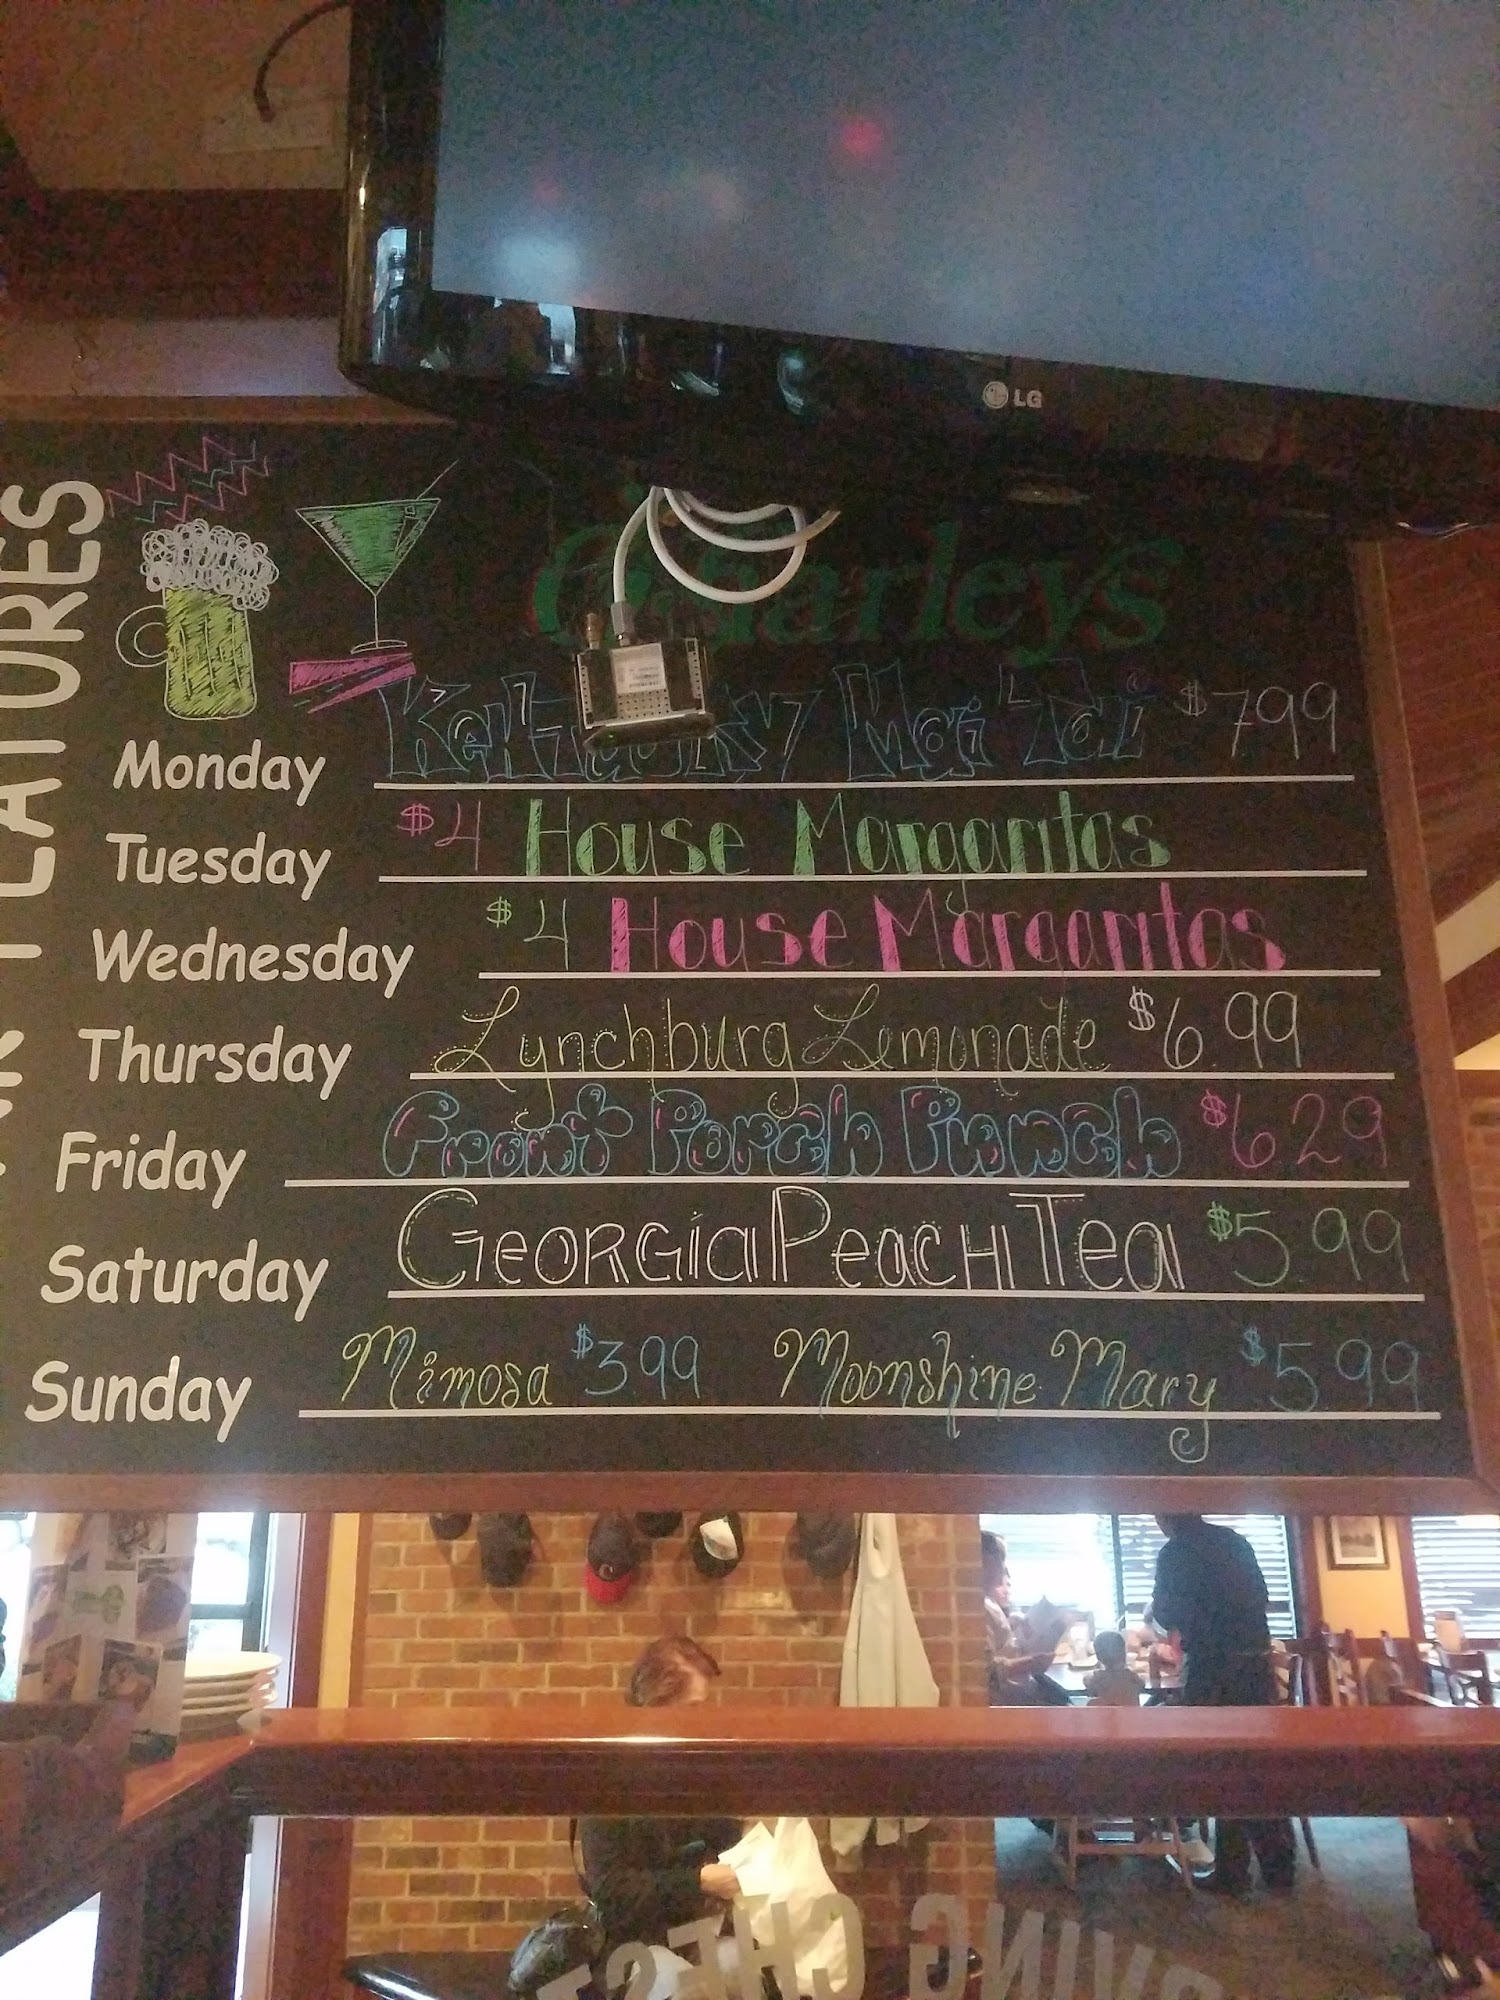 LG
O'Charleys
Monday Kentucky Mai Tai $7.99
Tuesday $4 House Margaritas
Wednesday $4 House Margaritas
Thursday Lynchburg Lemonade $6.99
Friday Front Porch Punch $6.29
Saturday Georgia Peach Tea $5.99
Sunday Mimosa $3.99 Moonshine Mary $5.99